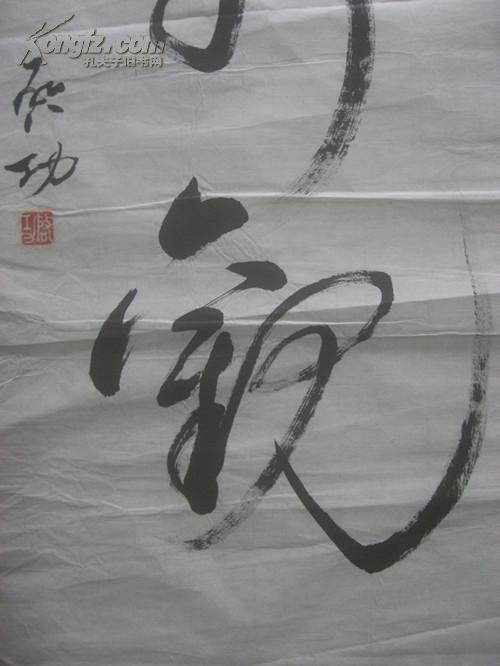 Kongfz.com
孔夫子旧书网
觀
启功